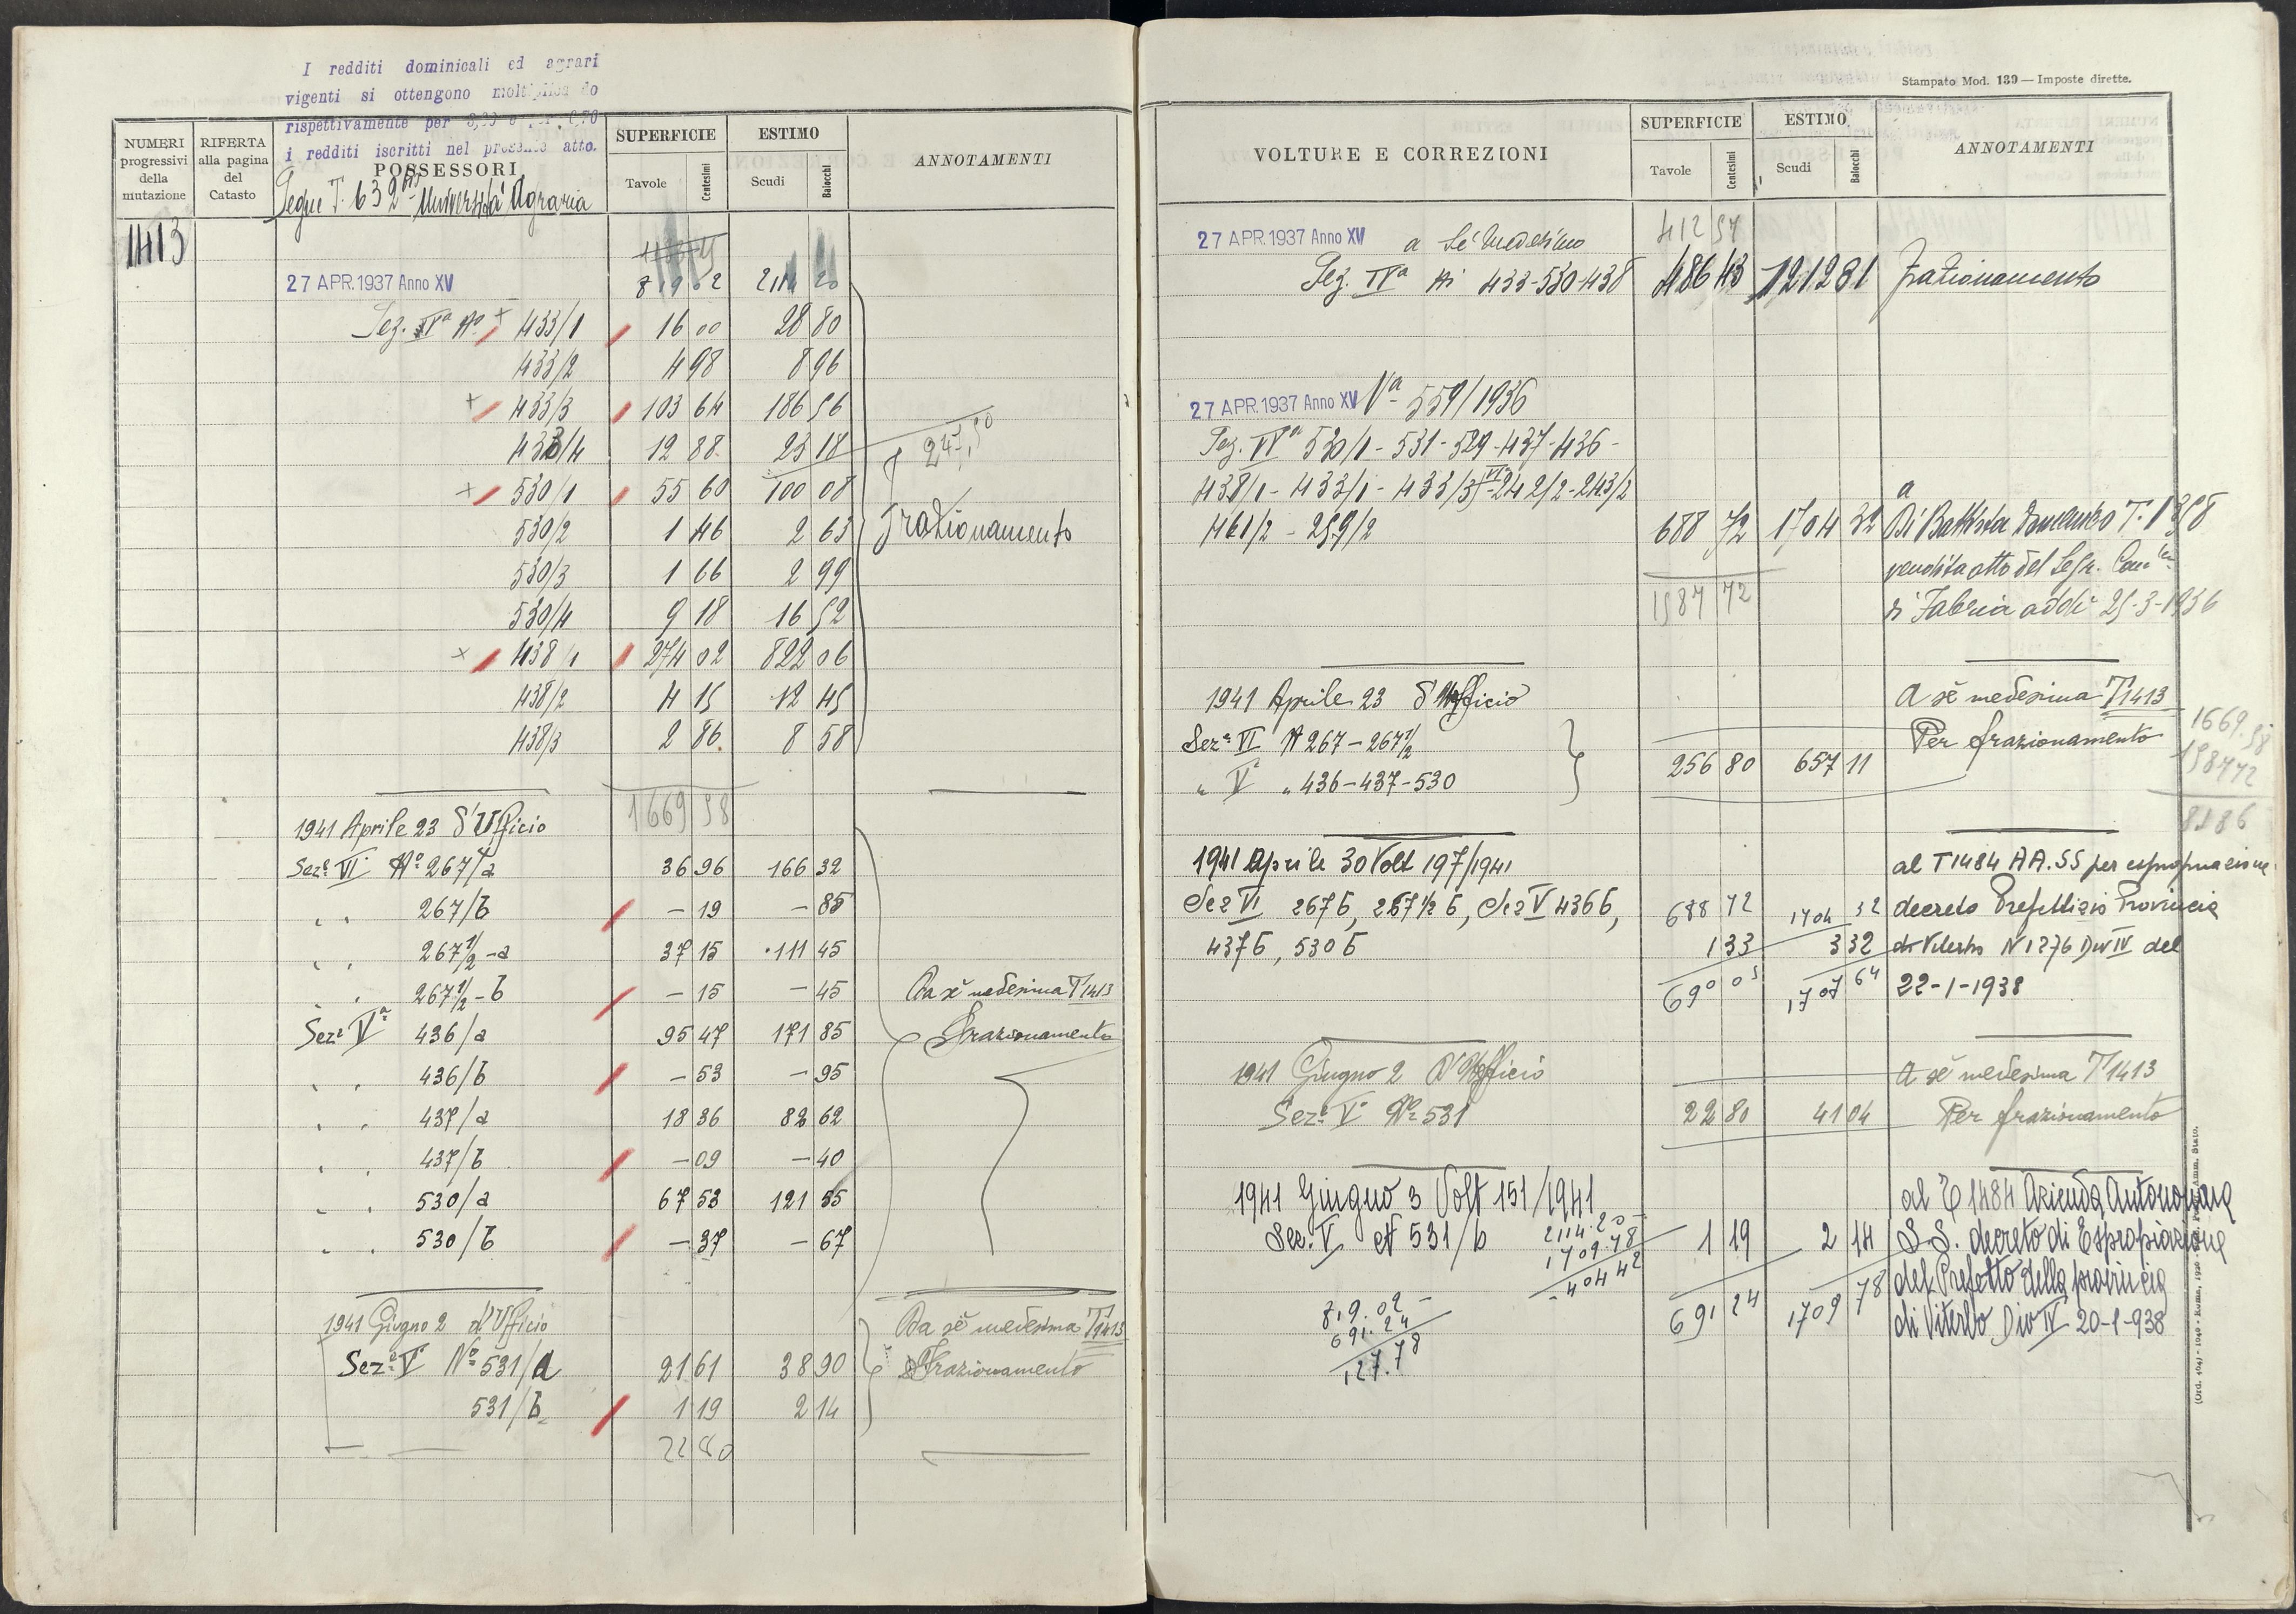 I redditi dominicali ed agrari
vigenti si ottengono moltiplicando
rispettivamente per
i redditi iscritti nel presente atto.
NUMERI progressivi della mutazione
RIFERTA alla pagina del Catasto
POSSESSORI
SUPERFICIE
Tavole Centesimi
ESTIMO
Scudi Baiocchi
ANNOTAMENTI
Segue T. 632 bis Università Agraria
1413
27 APR. 1937 Anno XV 819 02 2114 20
Sez. Vª Nº 433/1 16 00 28 80
433/2 4 98 8 96
433/3 103 64 186 56
433/4 12 88 23 18
247,50
530/1 55 60 100 08
530/2 1 46 2 63 frazionamento
530/3 1 66 2 99
530/4 9 18 16 52
438/1 274 02 822 06
438/2 4 15 12 45
438/3 2 86 8 58
1669 58
1941 Aprile 23 d'Ufficio
Sezᵉ VI Nº 267/a 36 96 166 32
" " 267/b — 19 — 85
" " 267 1/2 -a 37 15 111 45
" 267 1/2 -b — 15 — 45 Da sè medesima T 1413
Sezᵉ Vª 436/a 95 47 171 85 Frazionamento
" " 436/b — 53 — 95
" " 437/a 18 36 82 62
" " 437/b — 09 — 40
" " 530/a 67 53 121 55
" " 530/b — 37 — 67
1941 Giugno 2 d'Ufficio Da sè medesima T 1413
Sezᵉ V Nº 531/a 21 61 38 90 Frazionamento
531/b 1 19 2 14
22 80
Stampato Mod. 139 — Imposte dirette.
VOLTURE E CORREZIONI
SUPERFICIE
Tavole Centesimi
ESTIMO
Scudi Baiocchi
ANNOTAMENTI
412 57
27 APR. 1937 Anno XV a sé medesimo
Sez. Vª Ni 433-530-438 486 43 1212 81 frazionamento
27 APR. 1937 Anno XV Vª 559/1936
Sez. Vª 530/1 - 531 - 529 - 437 - 436 -
438/1 - 433/1 - 433/3) VI - 242/2 - 243/2 a
461/2 - 259/2 688 72 1704 32 Di Battista Domenico T. 1358
vendita atto del Segr. Com.le
1587 72
di Fabrica addì 25-3-1936
1941 Aprile 23 d'Ufficio A sè medesima T 1413
Sezᵉ VI N 267 - 267 1/2 Per frazionamento
" V " 436-437-530 256 80 657 11
1669.58
1587 72
81 86
1941 Aprile 30 Volt 197/1941 al T 1484 AA.SS per espropriazione
Sez VI 267b, 267 1/2 b, Sez V 436b, 688 72 1704 32 decreto Prefettizio Provincia
437b, 530b 1 33 3 32 di Viterbo N 1276 Div IV del
690 05 1707 64 22-1-1938
1941 Giugno 2 D'Ufficio A sè medesima T 1413
Sezᵉ V Nº 531 22 80 41 04 Per frazionamento
1941 Giugno 3 Volt 151/1941 al T 1484 Azienda Autonoma
Sez. V N 531/b 1 19 2 14 S.S. decreto di Espropriazione
2114.20
1709.78
404 42
691 24 1709 78 del Prefetto della provincia
di Viterbo Div IV 20-1-938
819.02
691.24
127.78